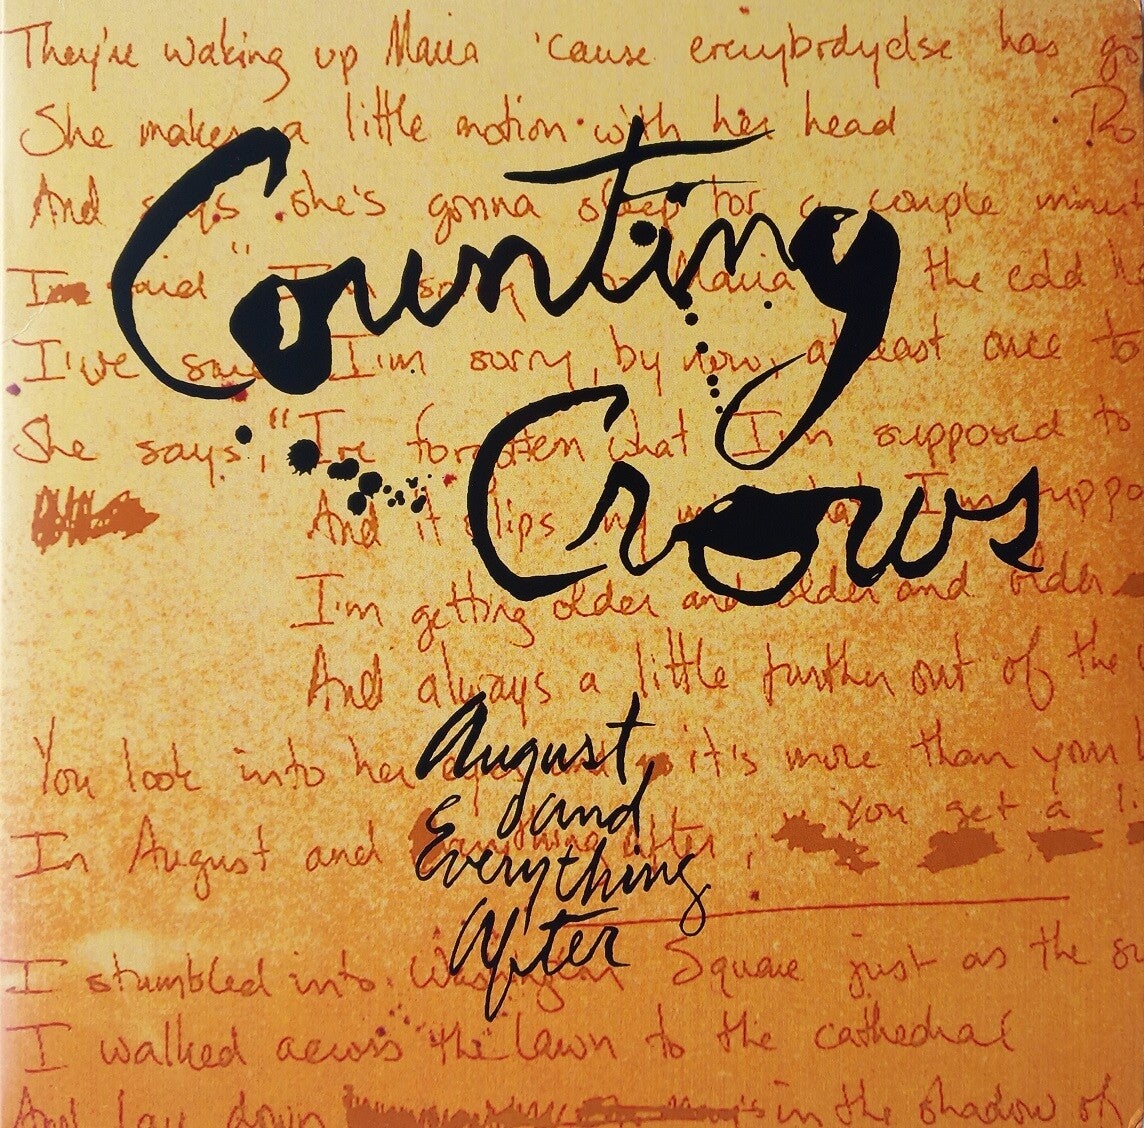 They're waking up Maria 'cause everybodyelse has go
She makes a little motion with her head
Ro
And says she's gonna sleep for a couple minut
I'm said "I'm sorry Maria the cold
I've said I'm sorry, by now, at least once to
She says, "I've forgotten what I'm supposed to
And it slips my I'm suppo
I'm getting older and older and older
And always a little further out of the
You look into her it's more than your
You get a
In August and Everything After,
I stumbled into Washington Square just as the su
I walked across the lawn to the cathedral
And lay down in the shadow of
Counting
Crows
August
and
Everything
After